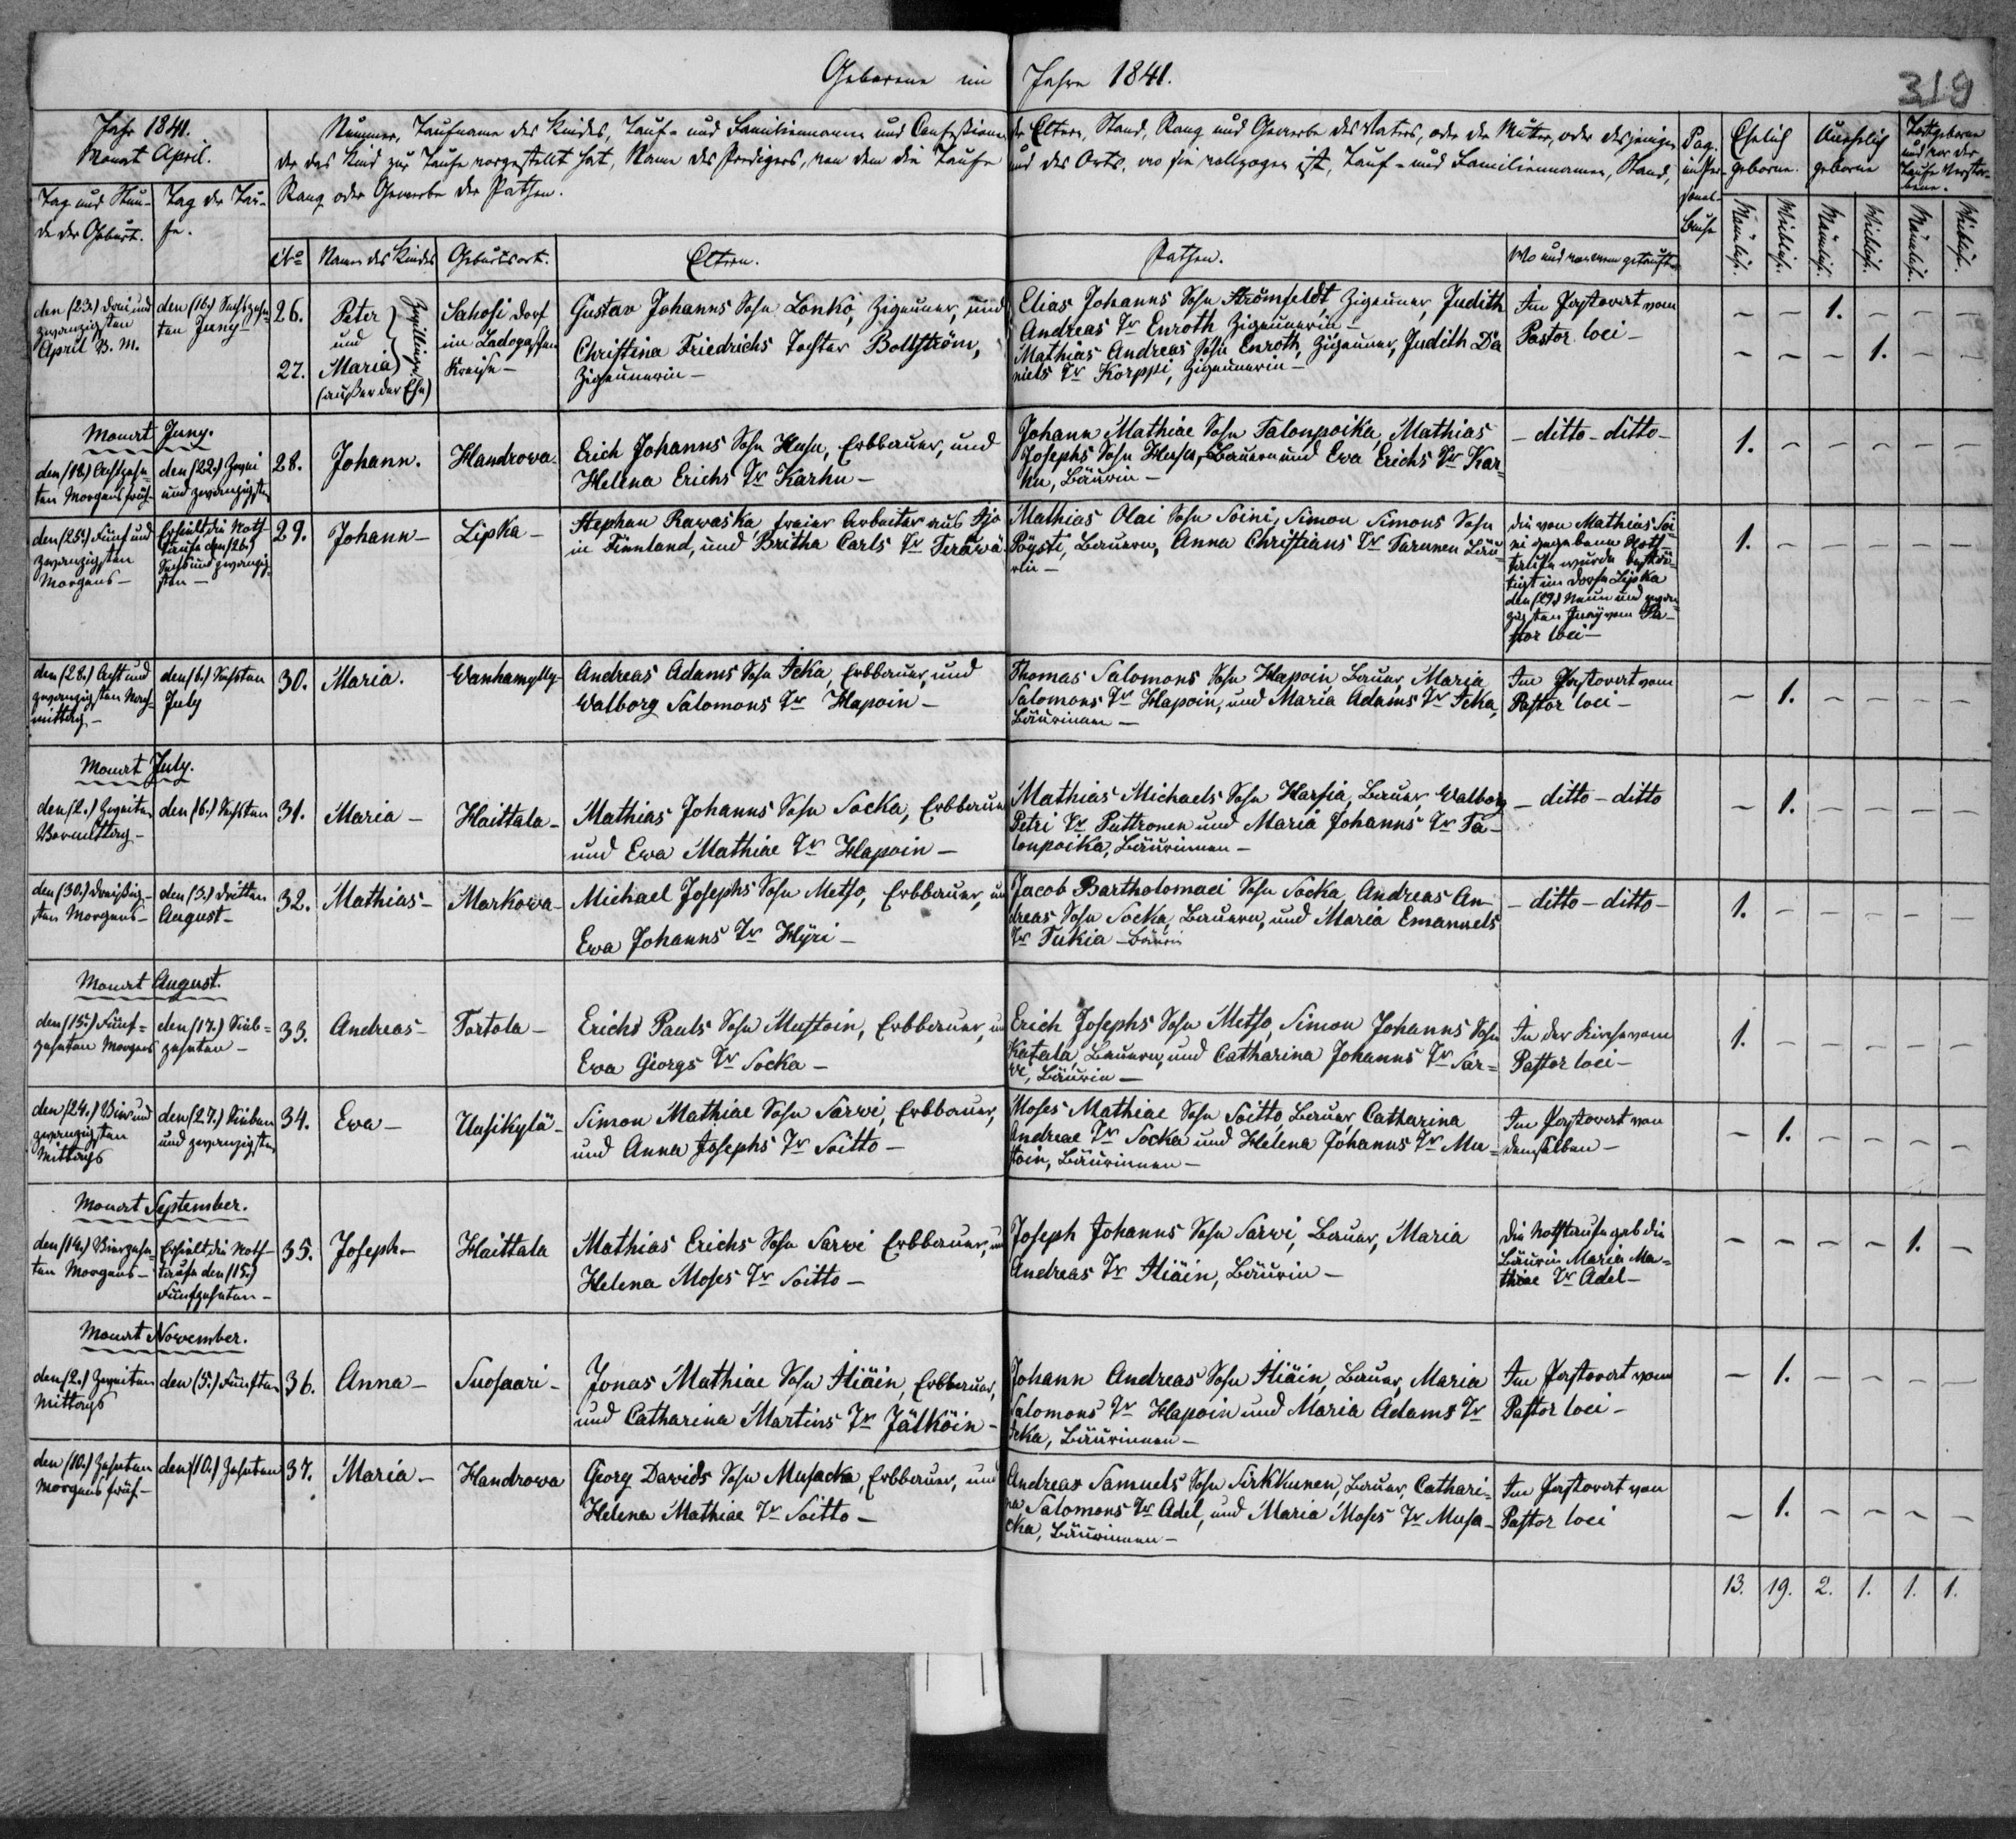 Geborene im Jahre 1841.
319
Jahr 1841.
Monat April.
Tag und Stun-
de der Geburt.
Tag der Tau-
fe.
Nummer, Taufname des Kindes, Tauf- und Familiennamen und Confessionen der Eltern, Stand, Rang und Gewerbe des Vaters, oder der Mutter, oder desjenigen
der das Kind zur Taufe vorgestellt hat, Name des Predigers, von dem die Taufe und des Orts, wo sie vollzogen ist, Tauf- und Familiennamen, Stand,
Rang oder Gewerbe der Pathen.
No
Name des Kindes
Geburtsort.
Eltern.
Pathen.
Wo und von wem getauft.
Pag.
im Per-
sonal-
Buche
Ehelich
geborne.
Unehelich
geborne
Todtgeborne
und vor der
Taufe Verstor-
bene.
Männlich.
Weiblich.
Männlich.
Weiblich.
Männlich.
Weiblich.
den (23.) drei und
zwanzigsten
April V. M.
den (16.) Sechszehn-
ten Juny-
26.
Peter
und
27.
Maria
(außer der Ehe)
Zwillinge
Sahosi Dorf
im Ladogaschen
Kreise-
Gustav Johanns Sohn Lonko, Zigeuner, und
Christina Friedrichs Tochter Bollström,
Zigeunerin-
Elias Johanns Sohn Strömfeldt Zigeuner, Judith
Andreas Tr Enroth Zigeunerin-
Mathias Andreas Sohn Enroth, Zigeuner, Judith Da
niels Tr Korppi, Zigeunerin-
Im Pastorat vom
Pastor loci-
- - 1. - - -
- - - 1. - -
Monat Juny.
den (18.) Achtzehn-
ten Morgens früh-
den (22.) Zwei
und zwanzigsten
28.
Johann.
Handrowa-
Erich Johanns Sohn Husu, Erbbauer, und
Helena Erichs Tr Karhu-
Johann Mathiae Sohn Talonpoika, Mathias
Josephs Sohn Husu, Bauern und Ewa Erichs Tr Kar-
hu, Bäurin-
- ditto - ditto-
1. - - - - -
den (25.) Fünf und
zwanzigsten
Morgens-
Erhielt die Noth-
taufe den (26.)
Sechs und zwanzig-
sten-
29.
Johann-
Lipka-
Stephan Rawaska freier Arbeiter aus
in Finnland, und Britha Carls Tr Teräwä-
Mathias Olai Sohn Soini, Simon Simons Sohn
Pöysti, Bauern, Anna Christians Tr Tarunen Bäu-
rin-
Die von Mathias Soi-
ni gegebene Noth-
taufe wurde bestä-
tigt im Dorfe Lipka
den (29.) Neun und zwan-
zigsten Juny vom Pa-
stor loci-
1. - - - - -
den (28.) Acht und
zwanzigsten Nach-
mittag-
den (6.) Sechsten
July
30.
Maria.
Wanhamylly-
Andreas Adams Sohn Icka, Erbbauer, und
Walborg Salomons Tr Hapoin-
Thomas Salomons Sohn Hapoin Bauer, Maria
Salomons Tr Hapoin, und Maria Adams Tr Icka,
Bäurinnen-
Im Pastorat vom
Pastor loci-
- 1. - - - -
Monat July.
den (2.) Zweiten
Vormittag-
den (6.) Sechsten
31.
Maria-
Haittala-
Mathias Johanns Sohn Socka, Erbbauer
und Ewa Mathiae Tr Hapoin-
Mathias Michaels Sohn Harsia, Bauer, Walborg
Petri Tr Puttronen und Maria Johanns Tr Ta-
lonpoika, Bäurinnen-
- ditto - ditto
- 1. - - - -
den (30.) Dreißig-
sten Morgens-
den (3.) Dritten
August-
32.
Mathias-
Markowa-
Michael Josephs Sohn Metso, Erbbauer, und
Ewa Johanns Tr Hÿri-
Jacob Bartholomaei Sohn Socka, Andreas An-
dreas Sohn Socka, Bauern, und Maria Emanuels
Tr Tukia - Bäurin
- ditto - ditto-
1. - - - - -
Monat August.
den (15.) Fünf-
zehnten Morgens
den (17.) Sieb-
zehnten-
33.
Andreas-
Tortola-
Erichs Pauls Sohn Mustoin, Erbbauer, und
Ewa Georgs Tr Socka-
Erich Josephs Sohn Metso, Simon Johanns Sohn
Katala, Bauern, und Catharina Johanns Tr Sar-
wi, Bäurin-
In der Kirche vom
Pastor loci-
1. - - - - -
den (24.) Vier und
zwanzigsten
Mittags
den (27.) Sieben
und zwanzigsten
34.
Ewa-
Uusikylä-
Simon Mathiae Sohn Sarwi, Erbbauer,
und Anna Josephs Tr Soitto-
Moses Mathiae Sohn Soitto, Bauer, Catharina
Andreae Tr Socka und Helena Johanns Tr Mu-
stoin, Bäurinnen-
Im Pastorat von
demselben-
- 1. - - - -
Monat September.
den (14.) Vierzehn-
ten Morgens-
Erhielt die Noth-
taufe den (15.)
Fünfzehnten-
35.
Joseph-
Haittala
Mathias Erichs Sohn Sarwi Erbbauer, und
Helena Moses Tr Soitto-
Joseph Johanns Sohn Sarwi, Bauer, Maria
Andreas Tr Hiäin, Bäurin-
Die Nothtaufe gab die
Bäurin Maria Ma-
thiae Tr Adel-
- - - - 1. -
Monat November.
den (2.) Zweiten
Mittags
den (5.) Fünften
36.
Anna-
Suosaari-
Jonas Mathiae Sohn Hiäin, Erbbauer,
und Catharina Martins Tr Jälköin-
Johann Andreas Sohn Hiäin, Bauer, Maria
Salomons Tr Hapoin und Maria Adams Tr
Icka, Bäurinnen-
Im Pastorat vom
Pastor loci-
- 1. - - - -
den (10.) Zehnten
Morgens früh-
den (10.) Zehnten
37.
Maria-
Handrowa
Georg Davids Sohn Musacka, Erbbauer, und
Helena Mathiae Tr Soitto-
Andreas Samuels Sohn Sirkkunen, Bauer, Cathari-
na Salomons Tr Adel, und Maria Moses Tr Musa-
cka, Bäurinnen-
Im Pastorat von
Pastor loci
- 1. - - - -
13. 19. 2. 1. 1. 1.